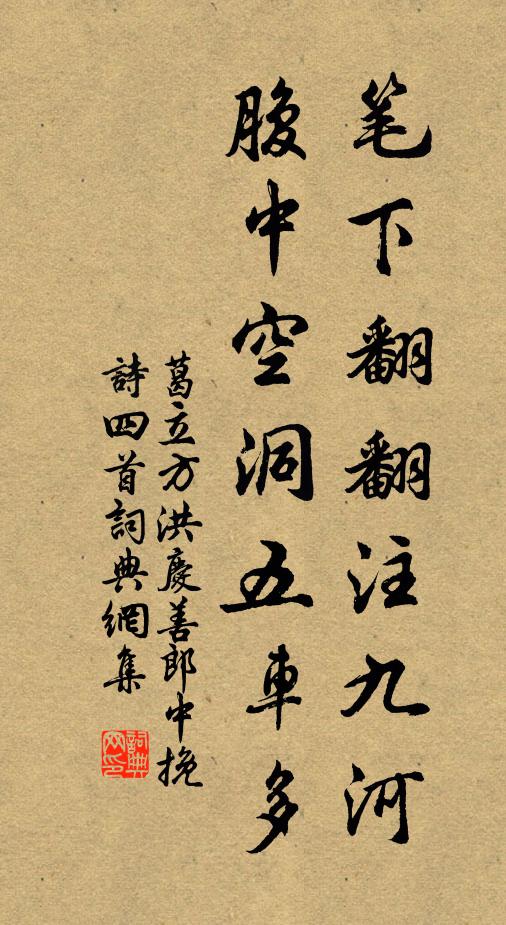 笔下翻翻注九河
腹中空洞五車多
葛立方洪慶善郎中挽
詩四首詞典網集
詞典
网印